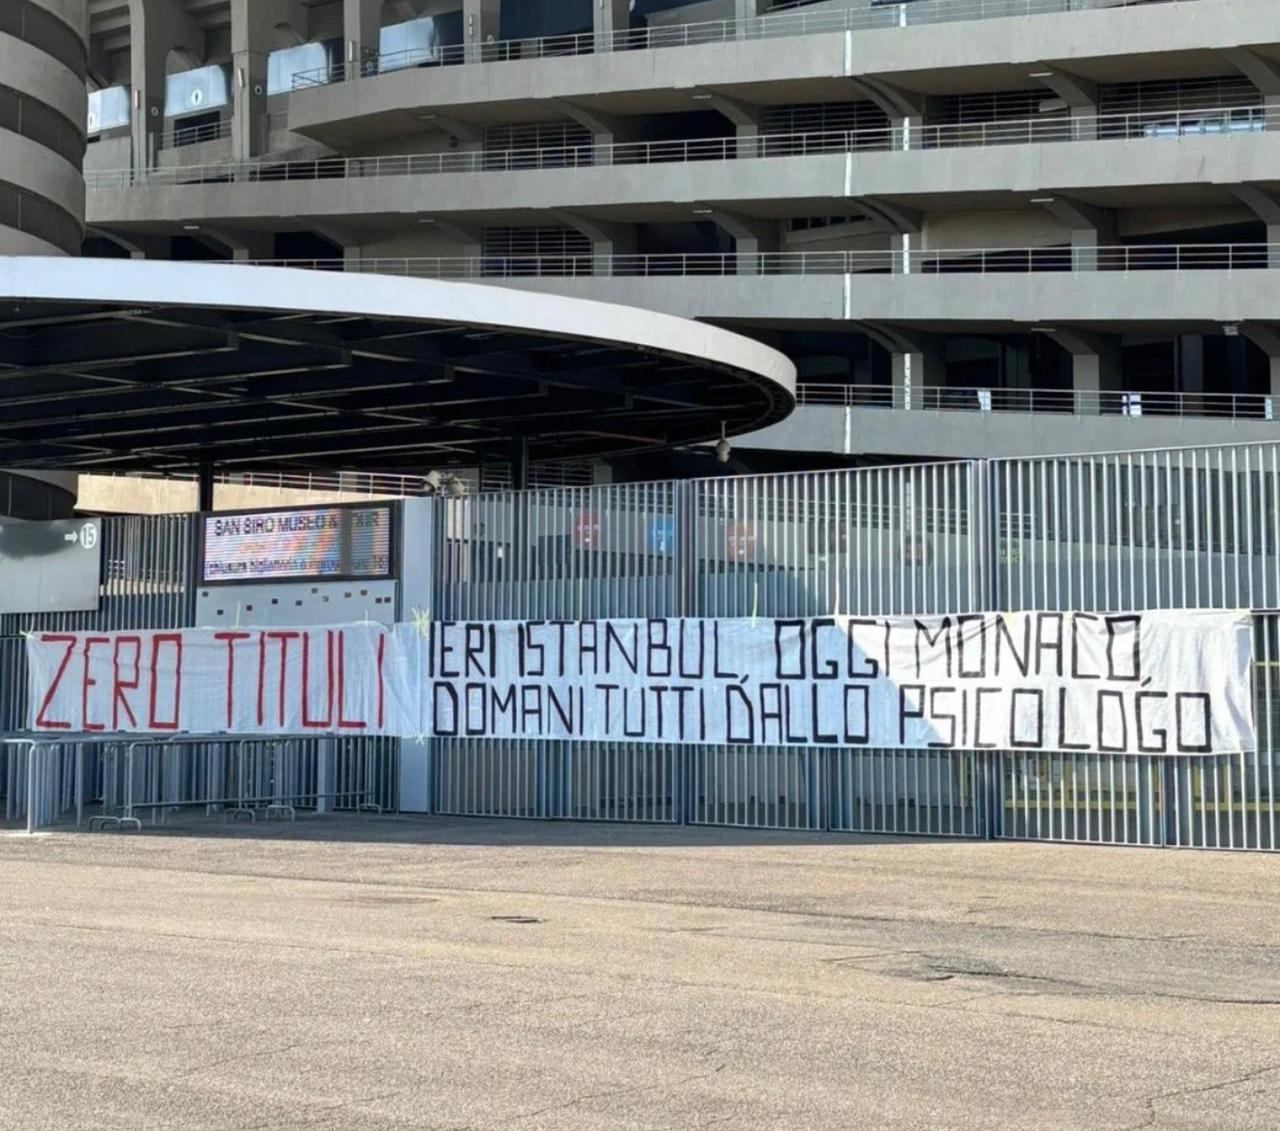 15
SAN SIRO MUSEO
ZERO TITULI
IERI ISTANBUL, OGGI MONACO,
DOMANI TUTTI DALLO PSICOLOGO